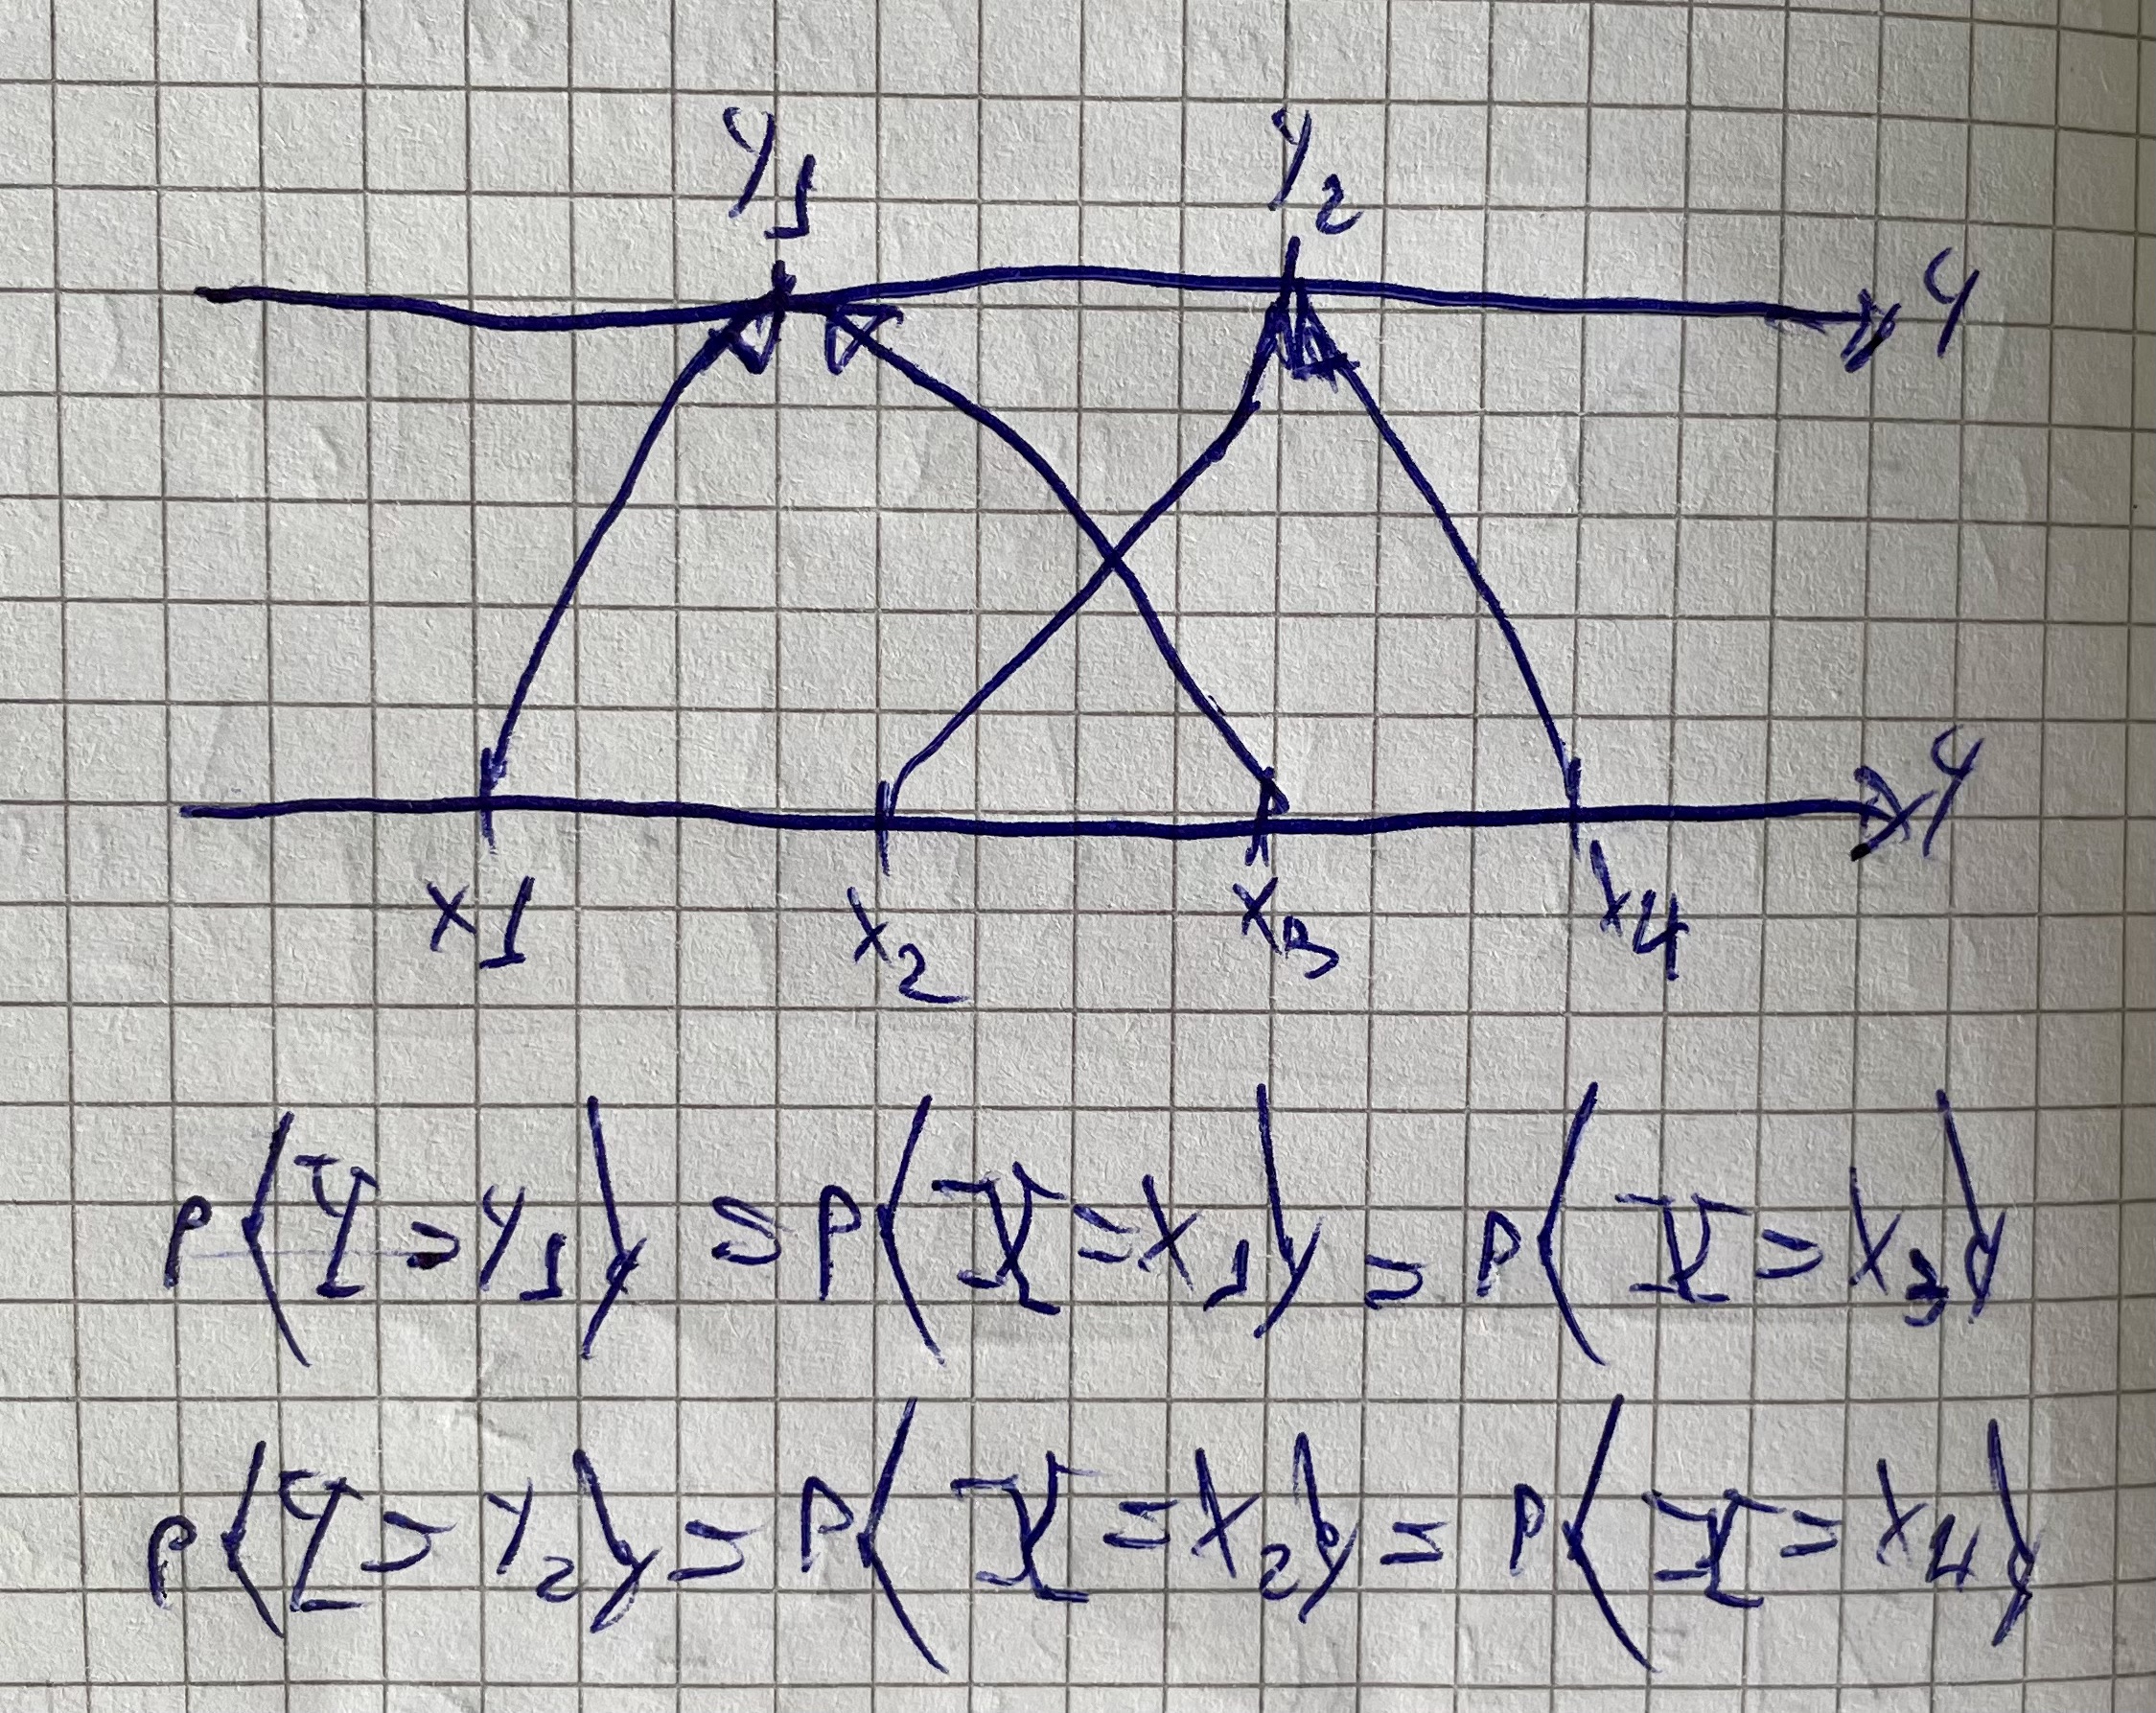 y1 y2
y
y
x1 x2 x3 x4
P{Y=y1} = P{X=x1} = P{X=x3}
P{Y=y2} = P{X=x2} = P{X=x4}